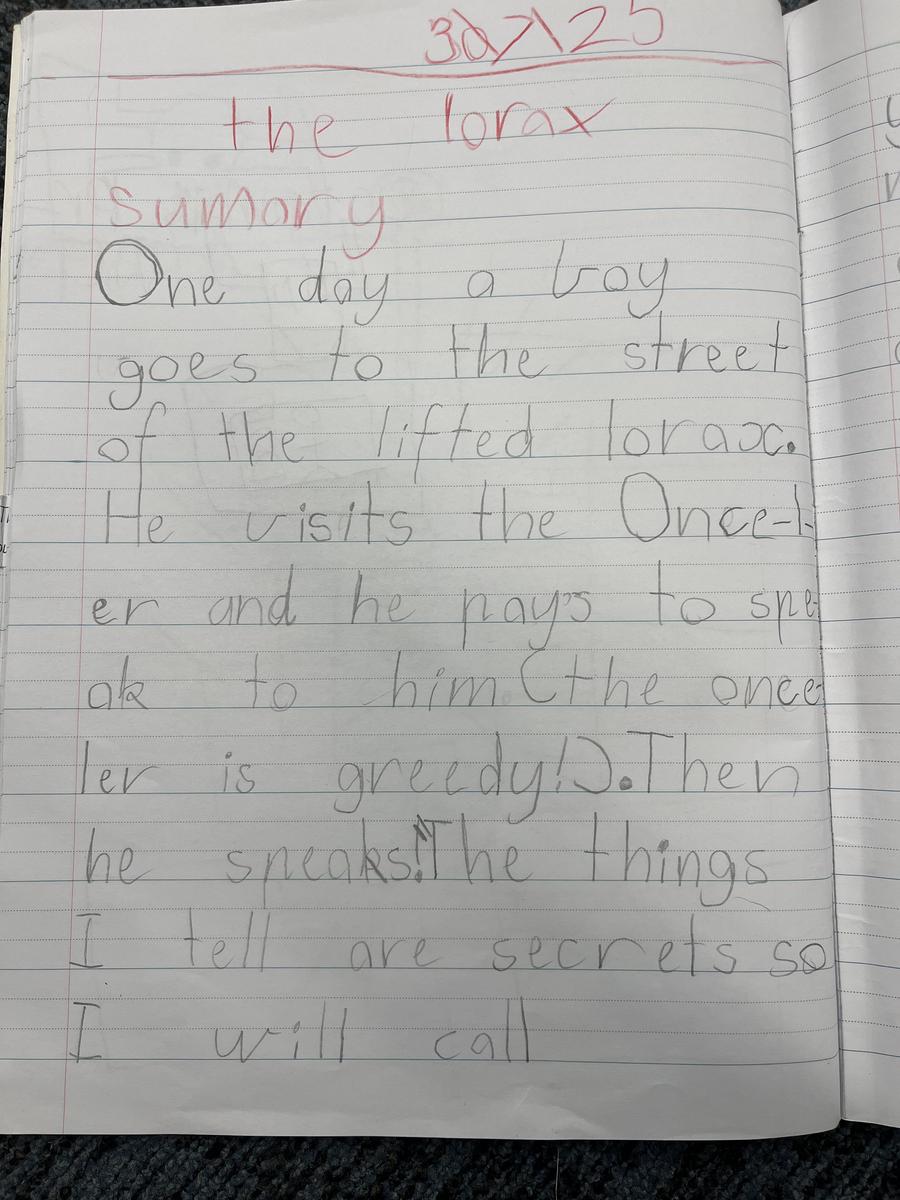 the lorax
sumory
One day a boy
goes to the street
of the lifted lorax.
He visits the Once-l
er and he pays to spe
ak to him (the once-
ler is greedy!). Then
he speaks! "The things
I tell are secrets so
I will call